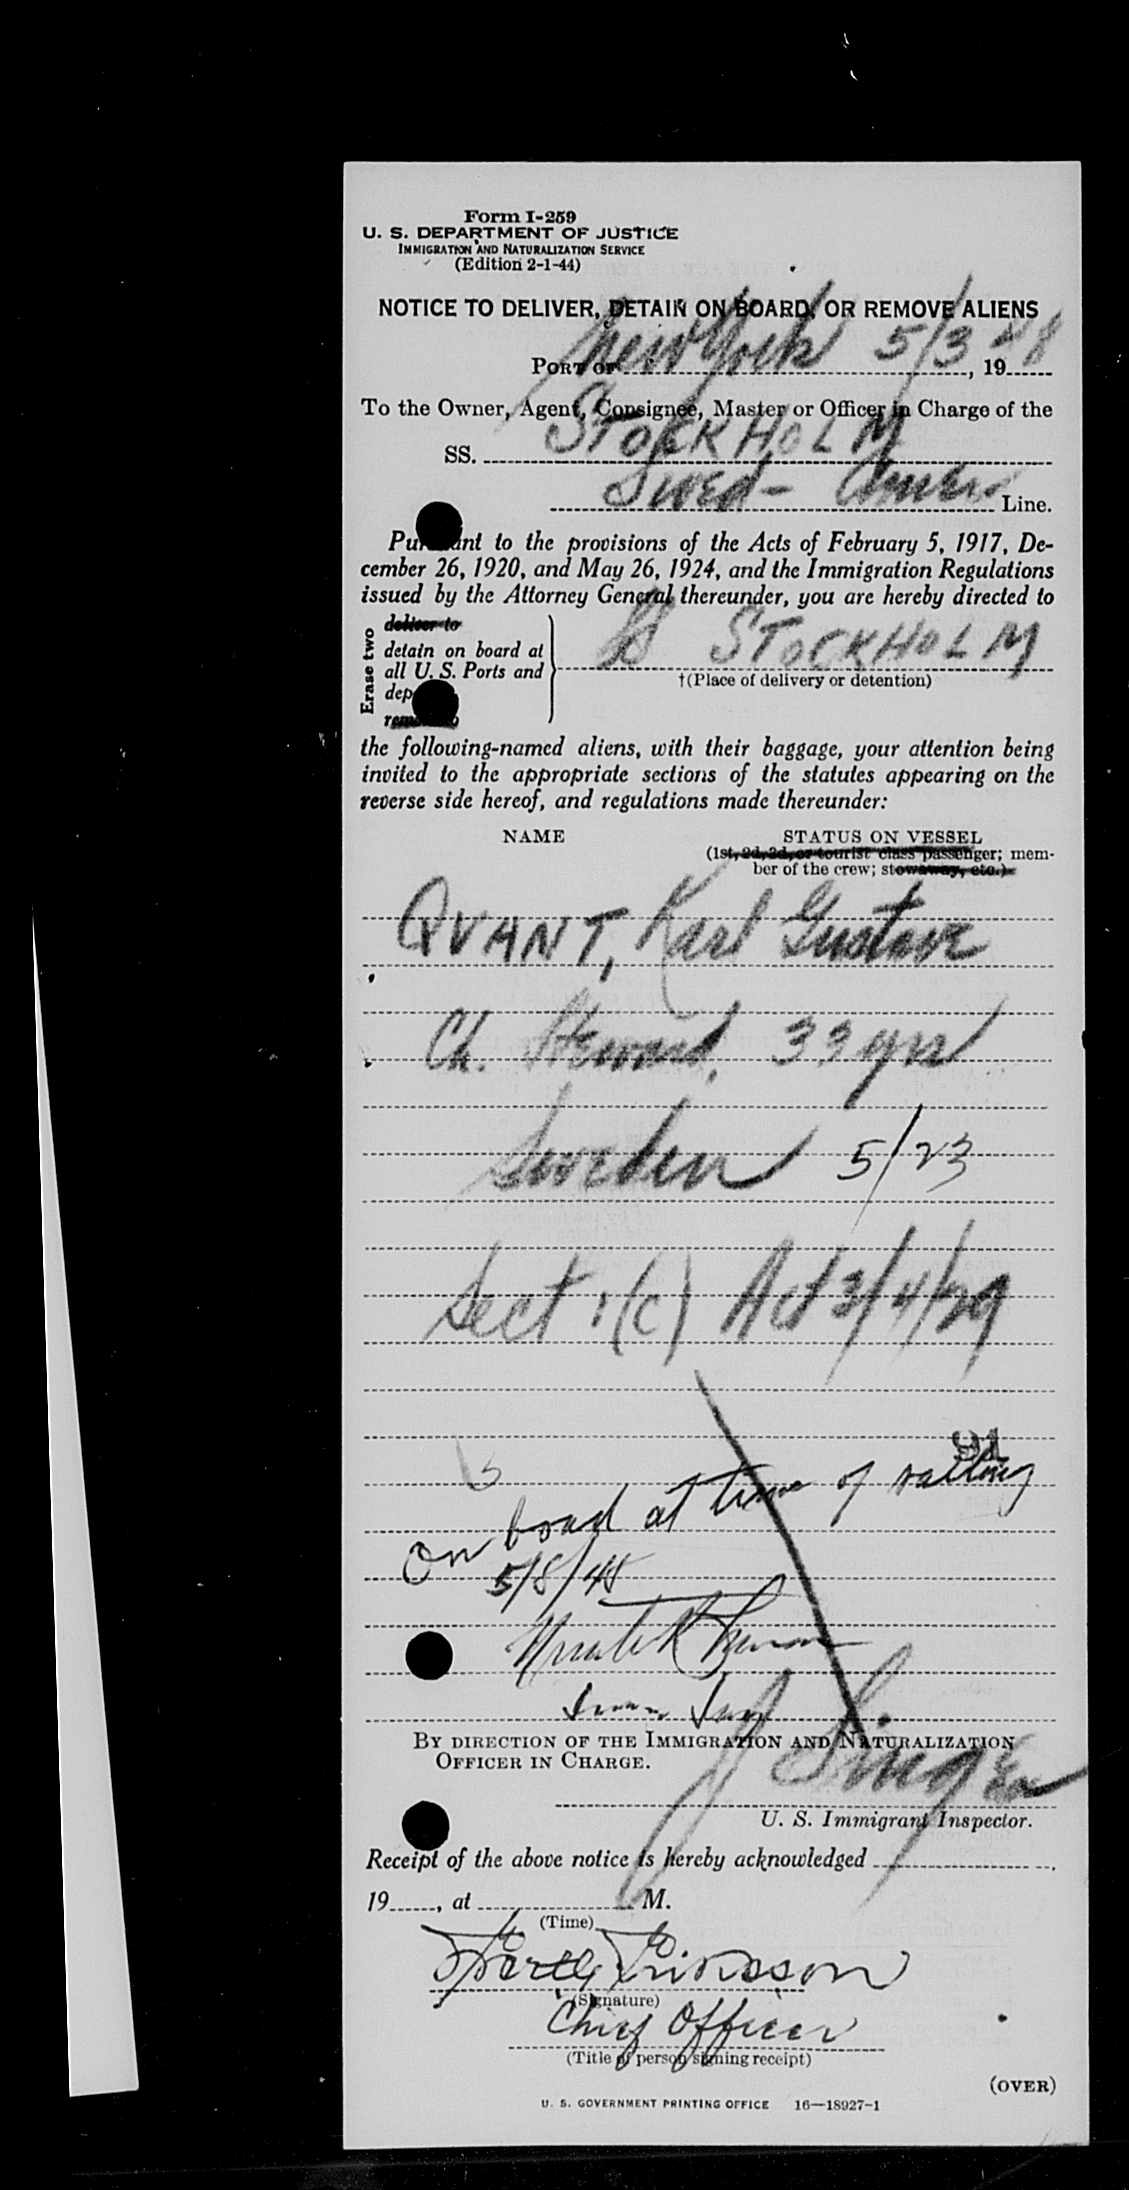 Form I-259
U. S. DEPARTMENT OF JUSTICE
IMMIGRATION AND NATURALIZATION SERVICE
(Edition 2-1-44)
NOTICE TO DELIVER, DETAIN ON BOARD, OR REMOVE ALIENS
PORT OF New York 5/3, 1948
To the Owner, Agent, Consignee, Master or Officer in Charge of the
SS. STOCKHOLM
Swed- Amer Line.
Pursuant to the provisions of the Acts of February 5, 1917, De-
cember 26, 1920, and May 26, 1924, and the Immigration Regulations
issued by the Attorney General thereunder, you are hereby directed to
Erase two
deliver to
detain on board at
all U. S. Ports and
dep
remove to
SS STOCKHOLM
†(Place of delivery or detention)
the following-named aliens, with their baggage, your attention being
invited to the appropriate sections of the statutes appearing on the
reverse side hereof, and regulations made thereunder:
NAME STATUS ON VESSEL
(1st, 2d, 3d, or tourist class passenger; mem-
ber of the crew; stowaway, etc.)
QVANT, Karl Gustave
Ch. Steward, 33 yrs
Sweden 5/23
Sect 1(c) Act 3/4/29
91
On board at time of sailing
5/8/48
BY DIRECTION OF THE IMMIGRATION AND NATURALIZATION
OFFICER IN CHARGE.
J Singer
U. S. Immigrant Inspector.
Receipt of the above notice is hereby acknowledged
19, at M.
(Time)
Eriksson
(Signature)
Chief Officer
(Title of person signing receipt)
(OVER)
U. S. GOVERNMENT PRINTING OFFICE 16—18927-1